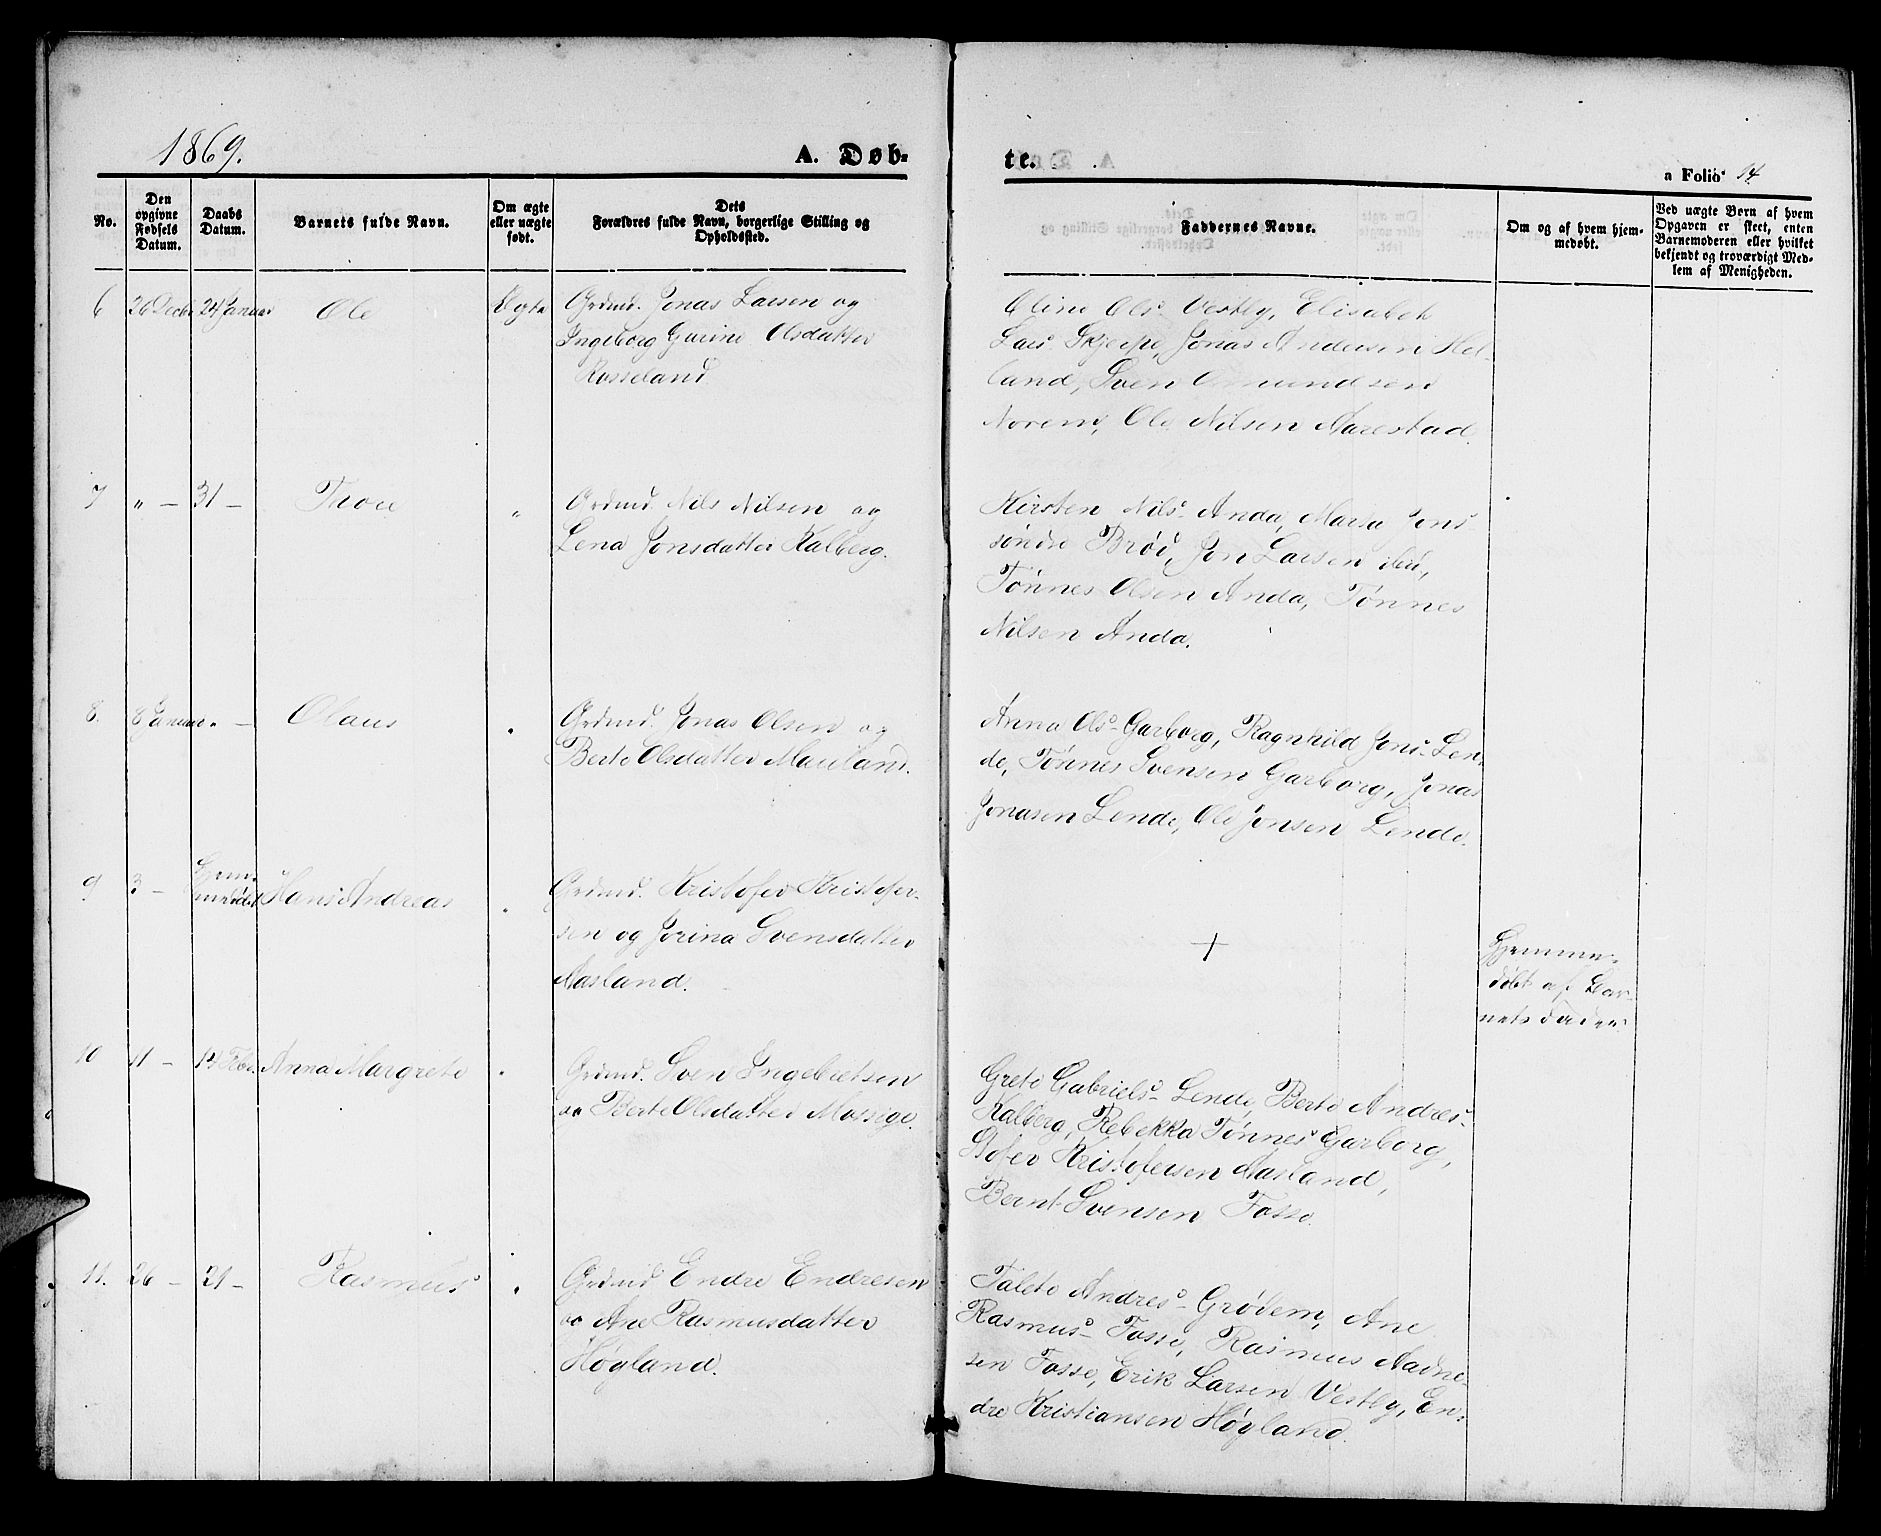 1869.
A. Døb-
te.
a Folio 14
No.
Den
opgivne
Fødsels
Datum.
Daabs
Datum.
Barnets fulde Navn.
Om ægte
eller uægte
født.
Dets
Forældres fulde Navn, borgerlige Stilling og
Opholdssted.
Faddernes Navne.
Om og af hvem hjem-
medøbt.
Ved uægte Børn af hvem
Opgaven er skeet, enten
Barnemoderen eller hvilket
bekjendt og troværdigt Med-
lem af Menigheden.
6 26 Decbr 24 Januar Ole Ægte
Grdmd. Jonas Larsen og
Ingeborg Gurine Olsdatter
Rosseland
Oline Ols- Vestly, Elisabet
Lars- Skjerpe, Jonas Andersen Hel-
land, Sven Omundsen
Norem, Ole Nilsen Aarestad.
7 " - 31 - Tore "
Grdmd. Nils Nilsen og
Lena Jonsdatter Kalberg.
Kirsten Nils- Anda, Maria Jons
søndre Brøi, Jon Larsen ibid,
Tønnes Olsen Anda, Tønnes
Nilsen Anda.
8. 8 Januar " - Olaus "
Grdmd. Jonas Olsen og
Berte Olsdatter Mauland.
Anna Ols- Garborg, Ragnhild Jons- Len-
de, Tønnes Svensen Garborg, Jonas
Jonasen Lende, Ole Jonsen Lende.
9 3 - Hjem-
medøbt Hans Andreas "
Grdmd. Kristofer Kristofer-
sen og Jorina Svensdatter
Aasland.
+
Hjemme-
døbt af Bar-
nets Fader
10 11 - 14 Febr. Anna Margrete "
Grdmd. Sven Ingebretsen
og Berte Olsdatter Mossige.
Grete Gabriels- Lende, Berte Andres-
Kalberg, Rebekka Tønnes- Garborg,
Stofer Kristofersen Aasland,
Bernt Svensen Fosse.
11. 26 - 21 - Rasmus "
Grdmd Endre Endresen
og Ane Rasmusdatter
Høgland.
Talete Andres- Grødem, Ane
Rasmus- Fosse, Rasmus Aadne-
sen Fosse, Erik Larsen Vestly, En-
dre Kristiansen Høgland.